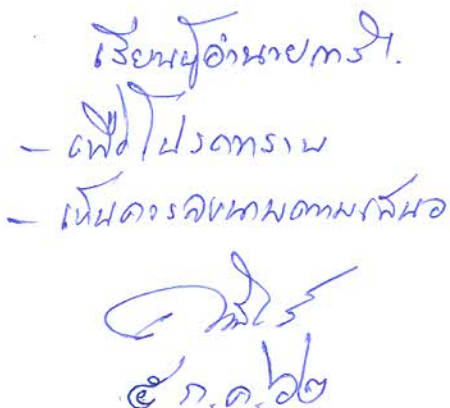 เรียนผู้อำนวยการฯ
- เพื่อโปรดทราบ
- เห็นควรลงนามตามเสนอ
๕ ก.ค. ๖๒